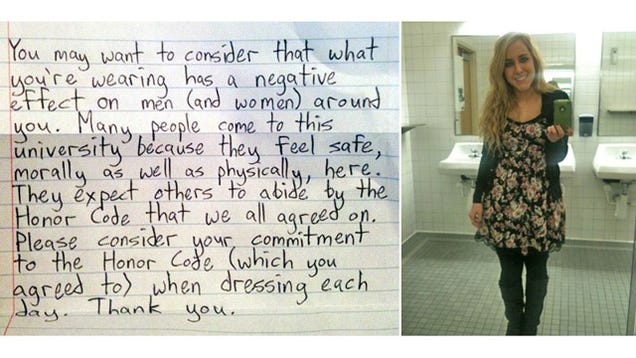 You may want to consider that what
you're wearing has a negative
effect on men (and women) around
you. Many people come to this
university because they feel safe,
morally as well as physically, here.
They expect others to abide by the
Honor Code that we all agreed on.
Please consider your commitment
to the Honor Code (which you
agreed to) when dressing each
day. Thank you.